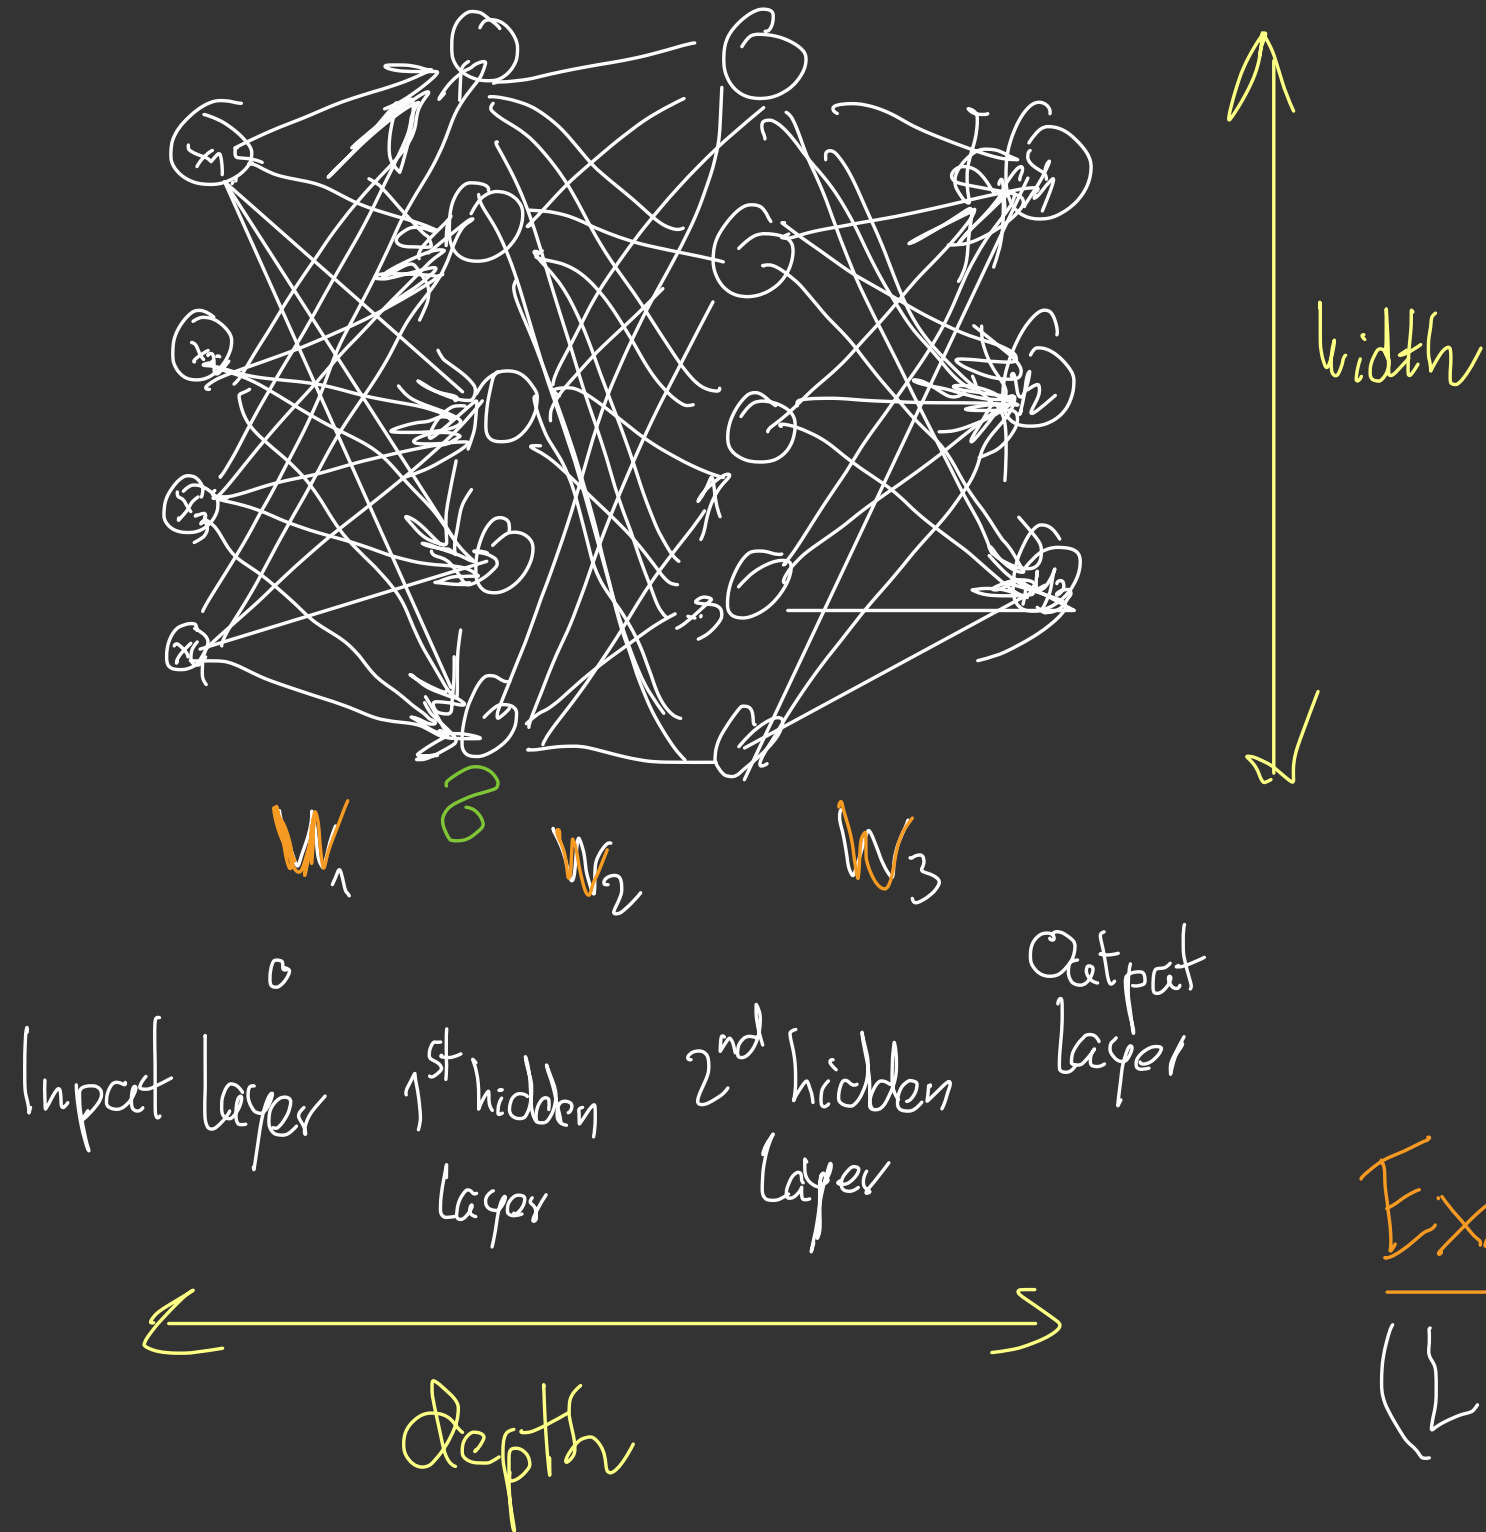 x1
x2
x3
x4
y1
y2
y3
width
W1
W2
W3
0
Input layer
1st hidden
layer
2nd hidden
layer
Output
layer
depth
Ex
(L